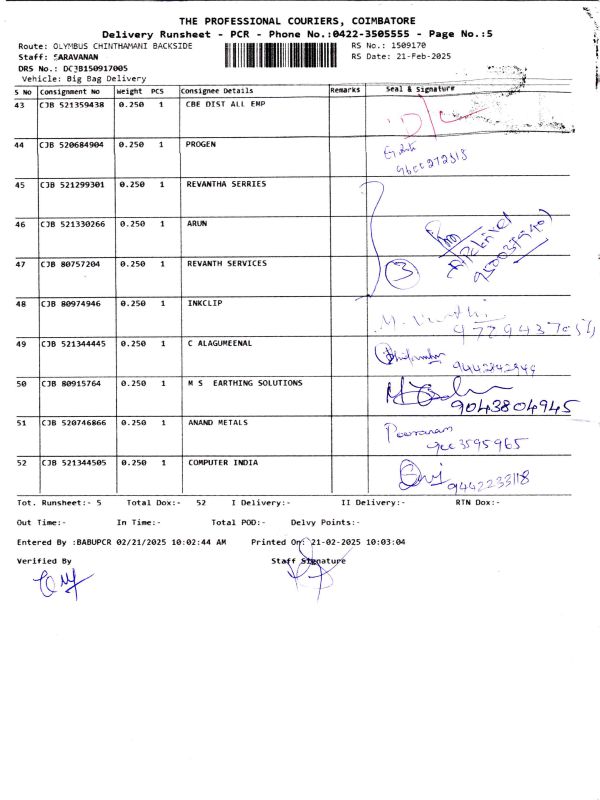 THE PROFESSIONAL COURIERS, COIMBATORE
Delivery Runsheet - PCR - Phone No.:0422-3505555 - Page No.:5
Route: OLYMBUS CHINTHAMANI BACKSIDE RS No.: 1509170
Staff: SARAVANAN RS Date: 21-Feb-2025
DRS No.: DCJB150917005
Vehicle: Big Bag Delivery
S No Consignment No Weight PCS Consignee Details Remarks Seal & Signature
43 CJB 521359438 0.250 1 CBE DIST ALL EMP
44 CJB 520684904 0.250 1 PROGEN
45 CJB 521299301 0.250 1 REVANTHA SERRIES
46 CJB 521330266 0.250 1 ARUN
47 CJB 80757204 0.250 1 REVANTH SERVICES 3
48 CJB 80974946 0.250 1 INKCLIP
49 CJB 521344445 0.250 1 C ALAGUMEENAL
50 CJB 80915764 0.250 1 M S EARTHING SOLUTIONS
9043804945
51 CJB 520746866 0.250 1 ANAND METALS
52 CJB 521344505 0.250 1 COMPUTER INDIA
9442233118
Tot. Runsheet:- 5 Total Dox:- 52 I Delivery:- II Delivery:- RTN Dox:-
Out Time:- In Time:- Total POD:- Delvy Points:-
Entered By :BABUPCR 02/21/2025 10:02:44 AM Printed On: 21-02-2025 10:03:04
Verified By Staff Signature